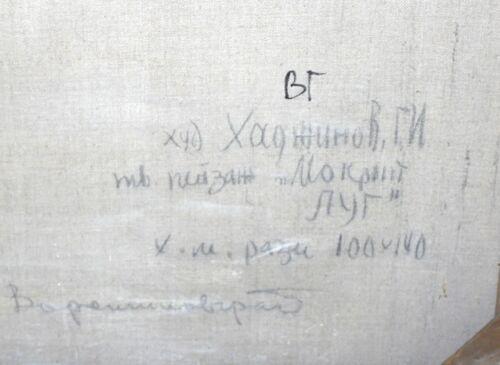 ВГ
худ Хаджинов, Г.И
тв. пейзаж „Мокрый
ЛУГ"
х. м. разм 100х140
Ворошиловград